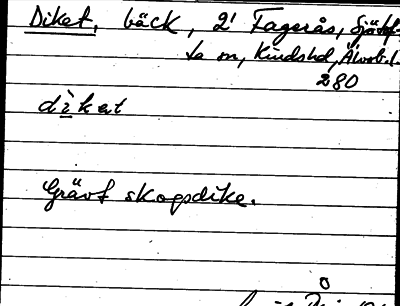 Diket, bäck, 2' Fagerås,
sn, Kinds hd, Älvsb. l.
280
dìket
Grävt skogsdike.